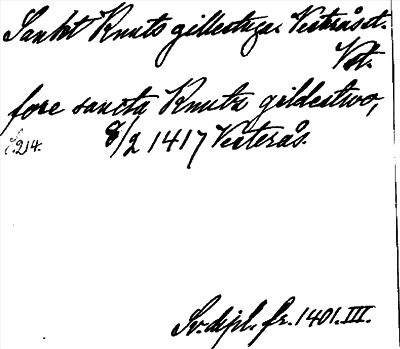 Sankt Knuts gillestuga Västerås st.
Vstm.
fore sancta Knutz gildestwo,
S. 214. 8/2 1417 Västerås.
Sv. dipl. fr. 1401. III.